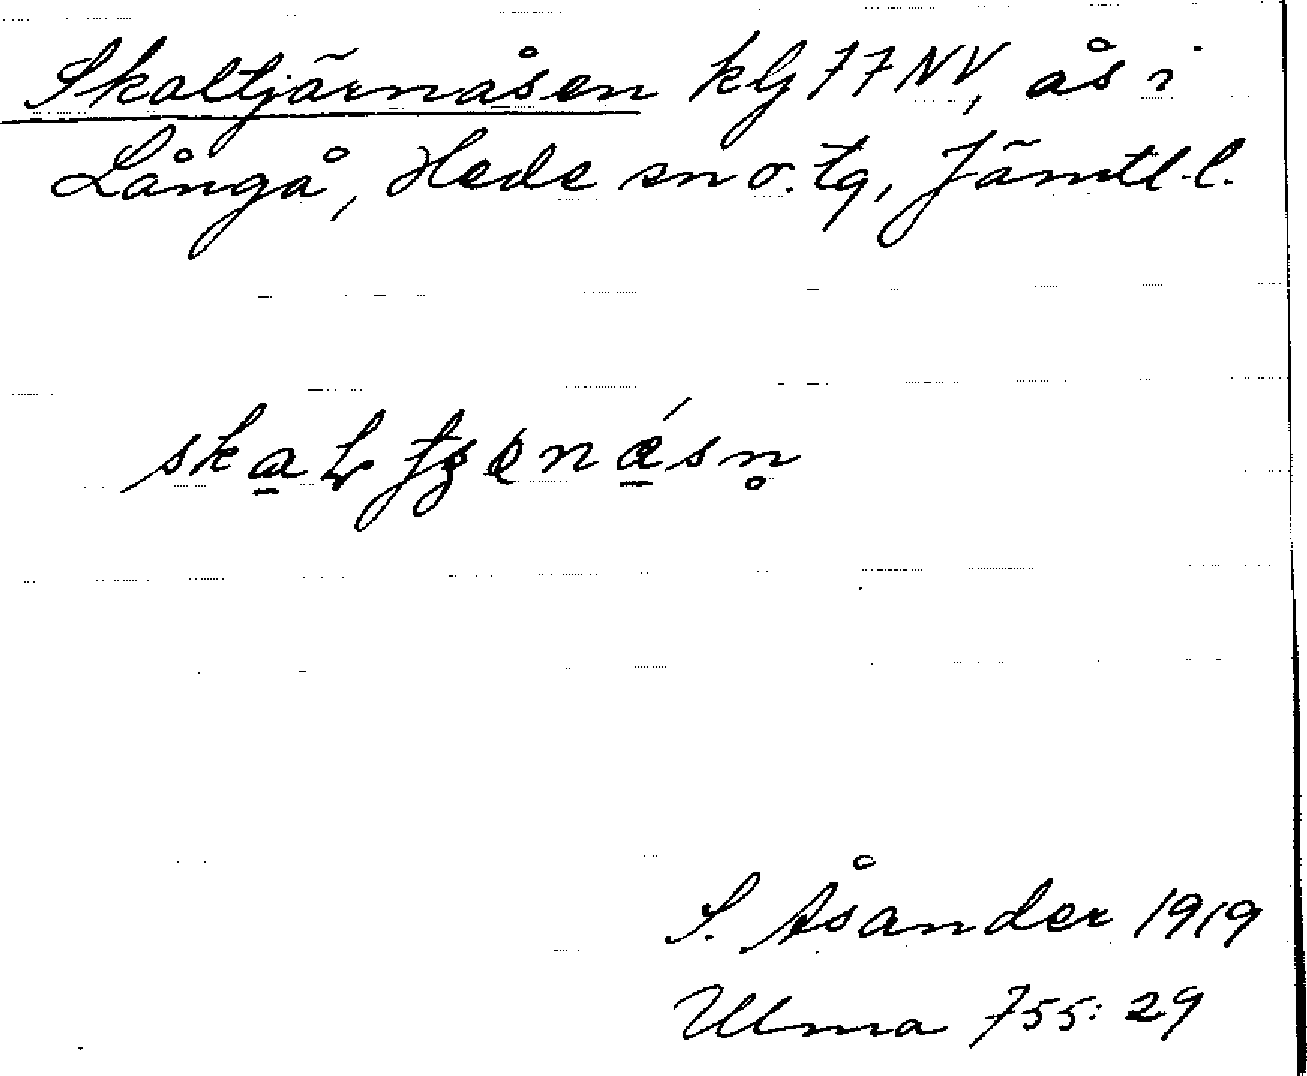 Skaltjärnåsen kbj 77NV, ås i
Långå, Hede sn o. tg, Jämtl. l.
S. Åsander 1919
Ulma 755: 29